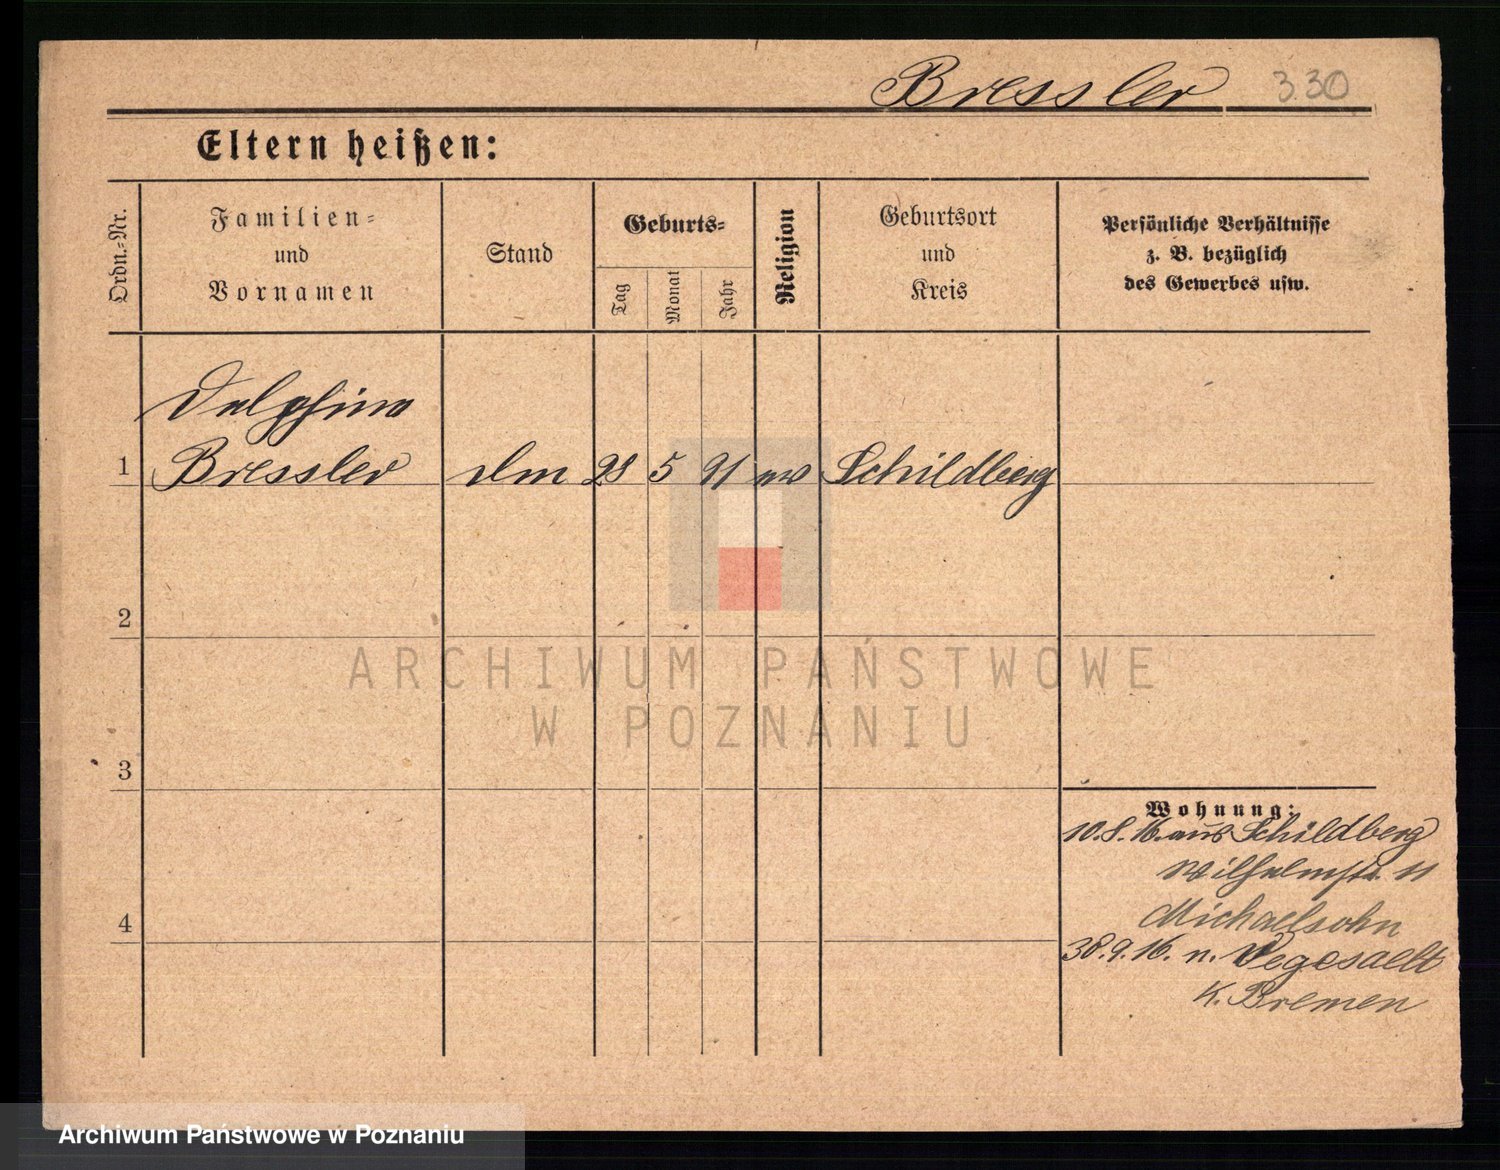 Bressler 330
Eltern heißen:
Ordn.-Nr.
Familien-
und
Vornamen
Stand
Geburts-
Tag
Monat
Jahr
Religion
Geburtsort
und
Kreis
Persönliche Verhältnisse
z. B. bezüglich
des Gewerbes usw.
Delphine
1 Bressler 28 5 91 ev Schildberg
2
3
4
Wohnung:
10.8.16. aus Schildberg
Wilhelmstr. 11
Michaelsohn
30.9.16. n. Vegesack
K. Bremen
ARCHIWUM PAŃSTWOWE
W POZNANIU
Archiwum Państwowe w Poznaniu